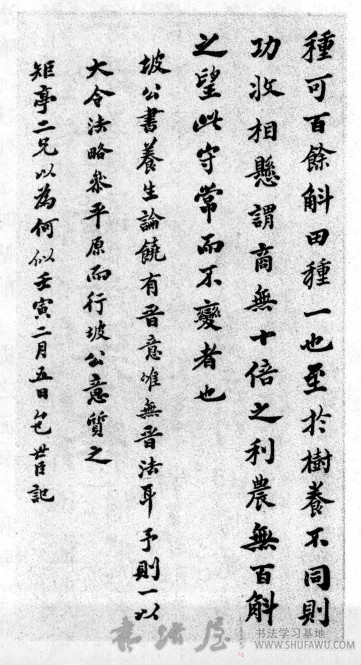 種可百餘斛田種一也至於樹養不同則
功收相懸謂商無十倍之利農無百斛
之望此守常而不變者也
坡公書養生論饒有晋意唯無晋法耳予則一以
大令法略參平原而行坡公意質之
矩亭二兄以為何似壬寅二月五日包世臣記
书法屋
书法学习基地
WWW.SHUFAWU.COM